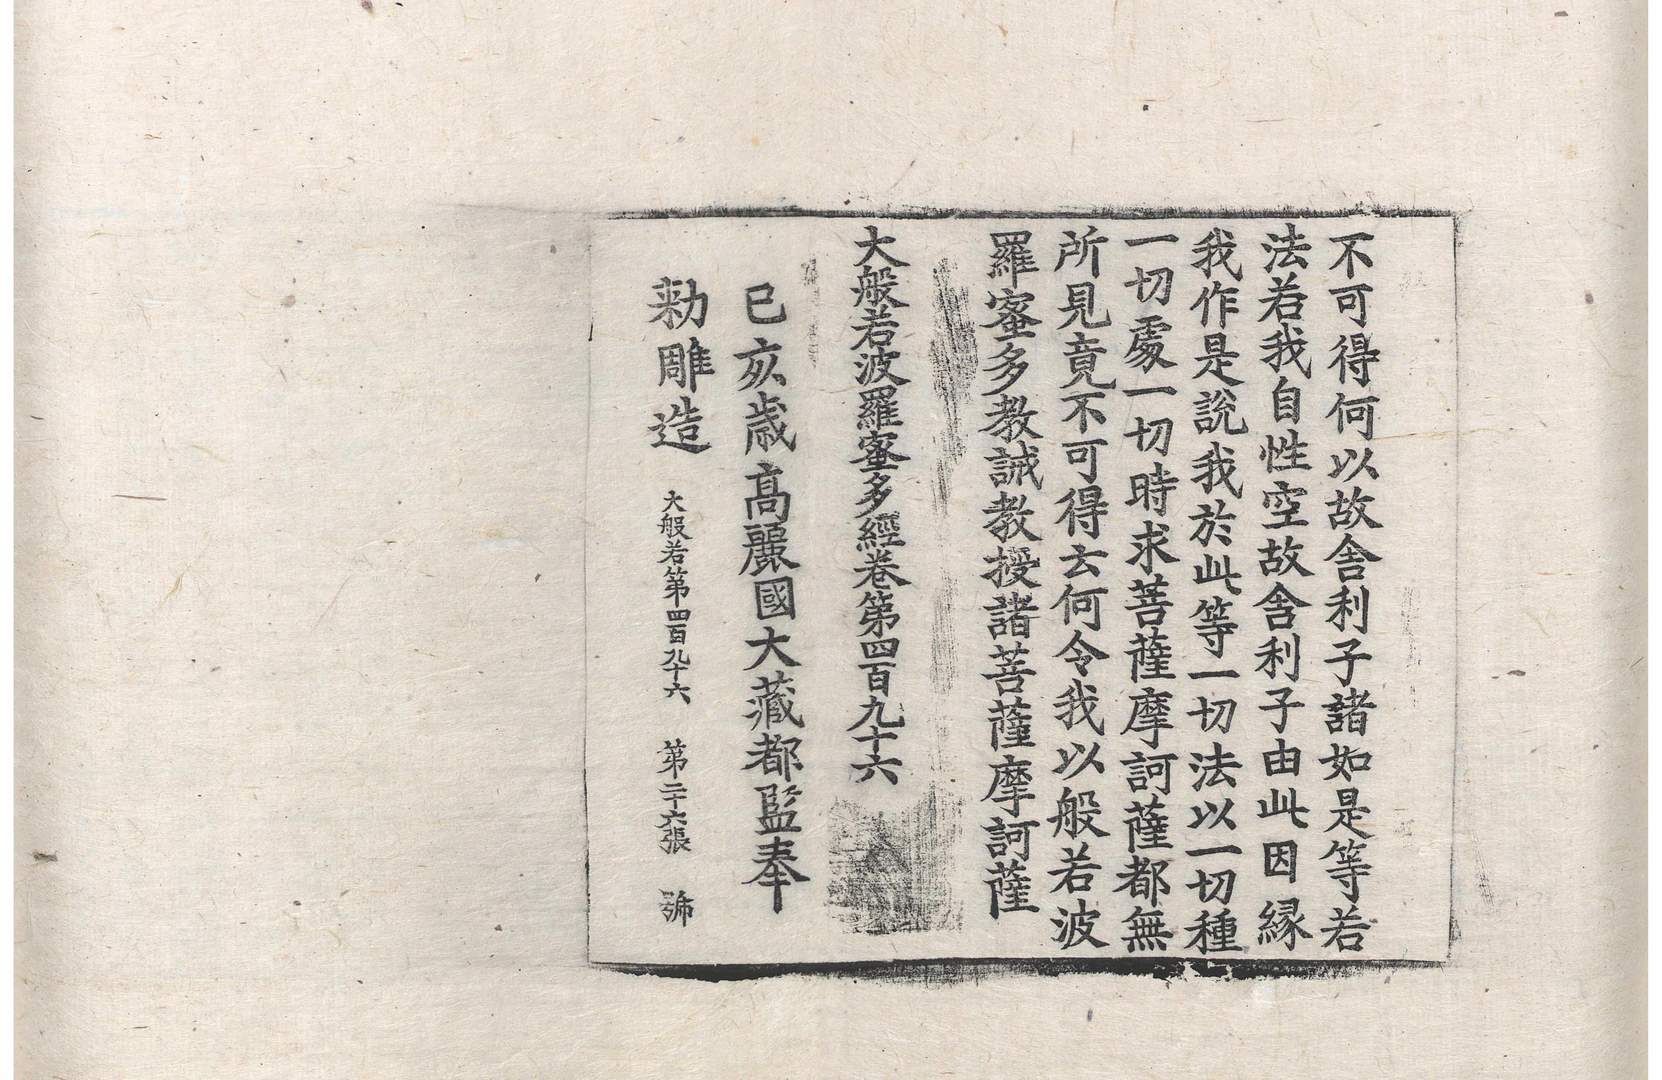 不可得何以故舍利子諸如是等若
法若我自性空故舍利子由此因縁
我作是說我於此等一切法以一切種
一切處一切時求菩薩摩訶薩都無
所見竟不可得云何令我以般若波
羅蜜多教誡教授諸菩薩摩訶薩
大般若波羅蜜多經卷第四百九十六
己亥歲高麗國大藏都監奉
勑雕造
大般若第四百九十六 第二十六張 號